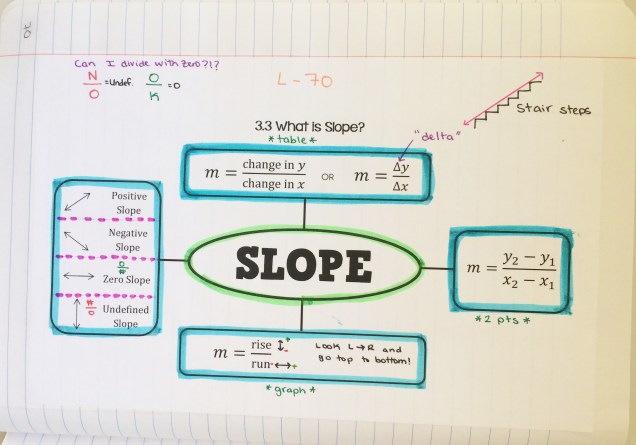 70
Can I divide with zero?!?
N/O = Undef. O/K = 0
L-70
Stair steps
3.3 What is Slope?
*table*
"delta"
m = change in y / change in x OR m = Δy / Δx
Positive Slope
Negative Slope
0/#
Zero Slope
#/0
Undefined Slope
SLOPE
m = y₂ − y₁ / x₂ − x₁
*2 pts*
m = rise / run
+
-
- +
Look L→R and
go top to bottom!
*graph*